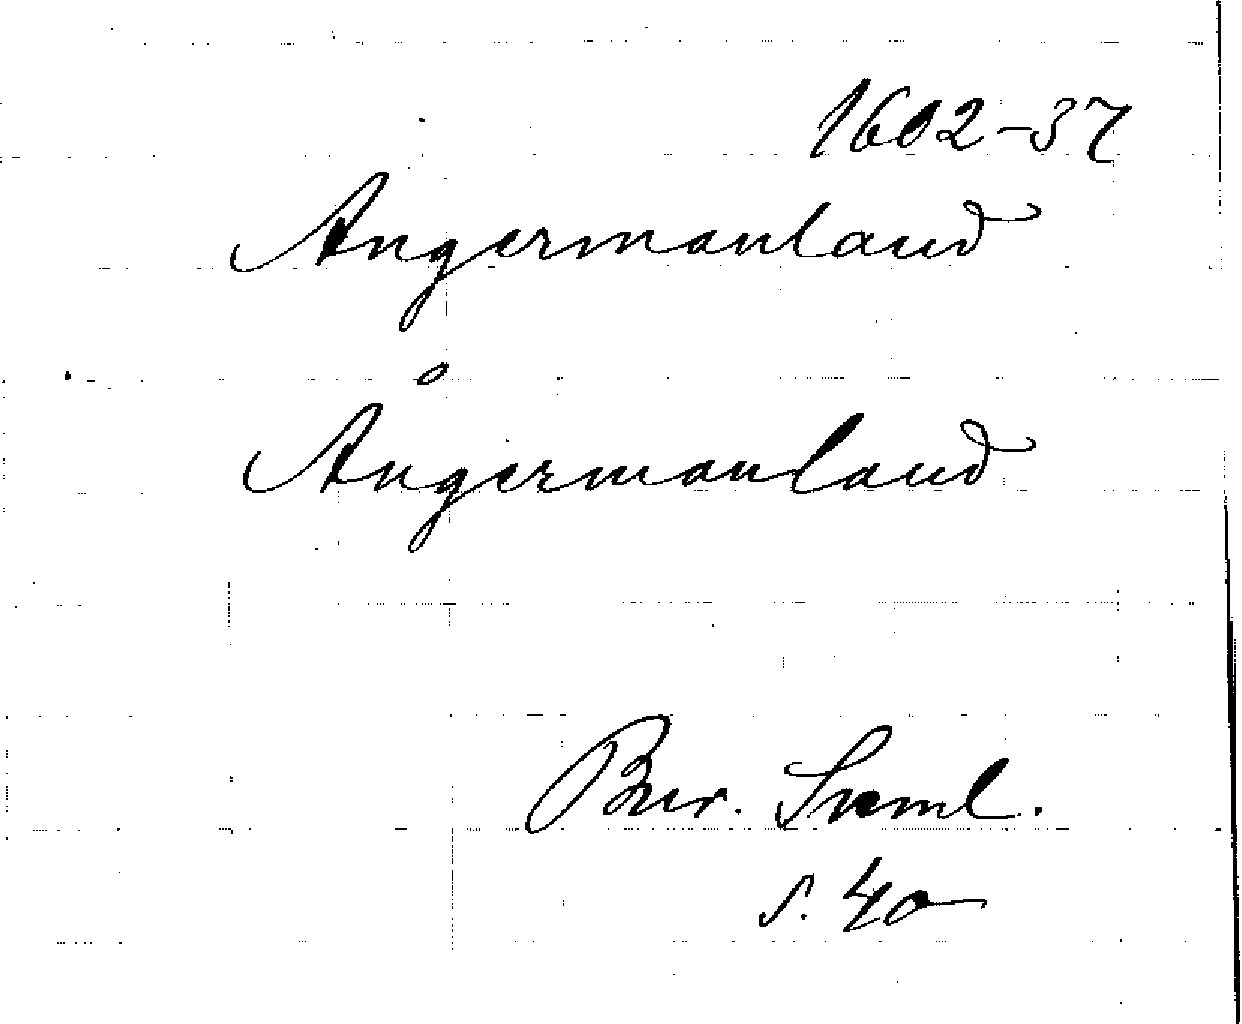 1602-37
Angermanland
Ångermanland
Bur. Saml.
s. 40